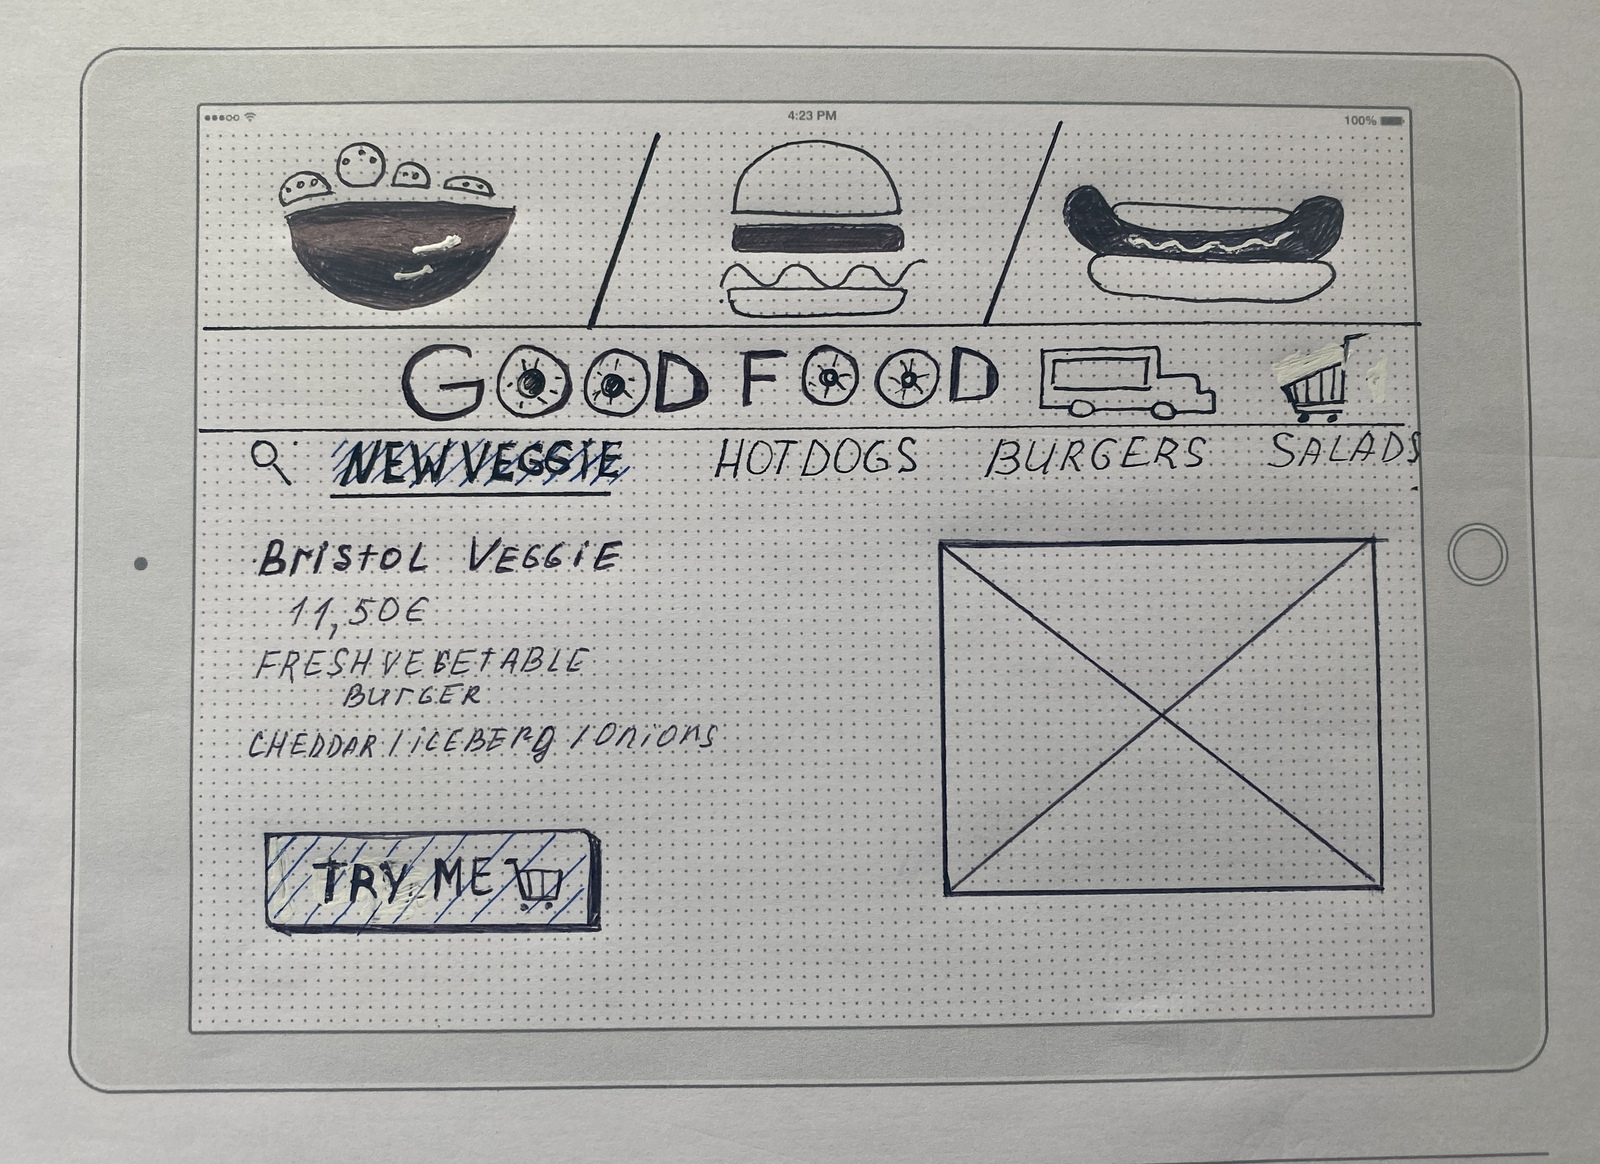 4:23 PM
100%
GOOD FOOD
NEW VEGGIE HOTDOGS BURGERS SALADS
BristoL VEGGiE
11,50€
FRESH VEGETABLE
BUrGER
CHEDDAR / iCEBErg / Onions
TRY ME